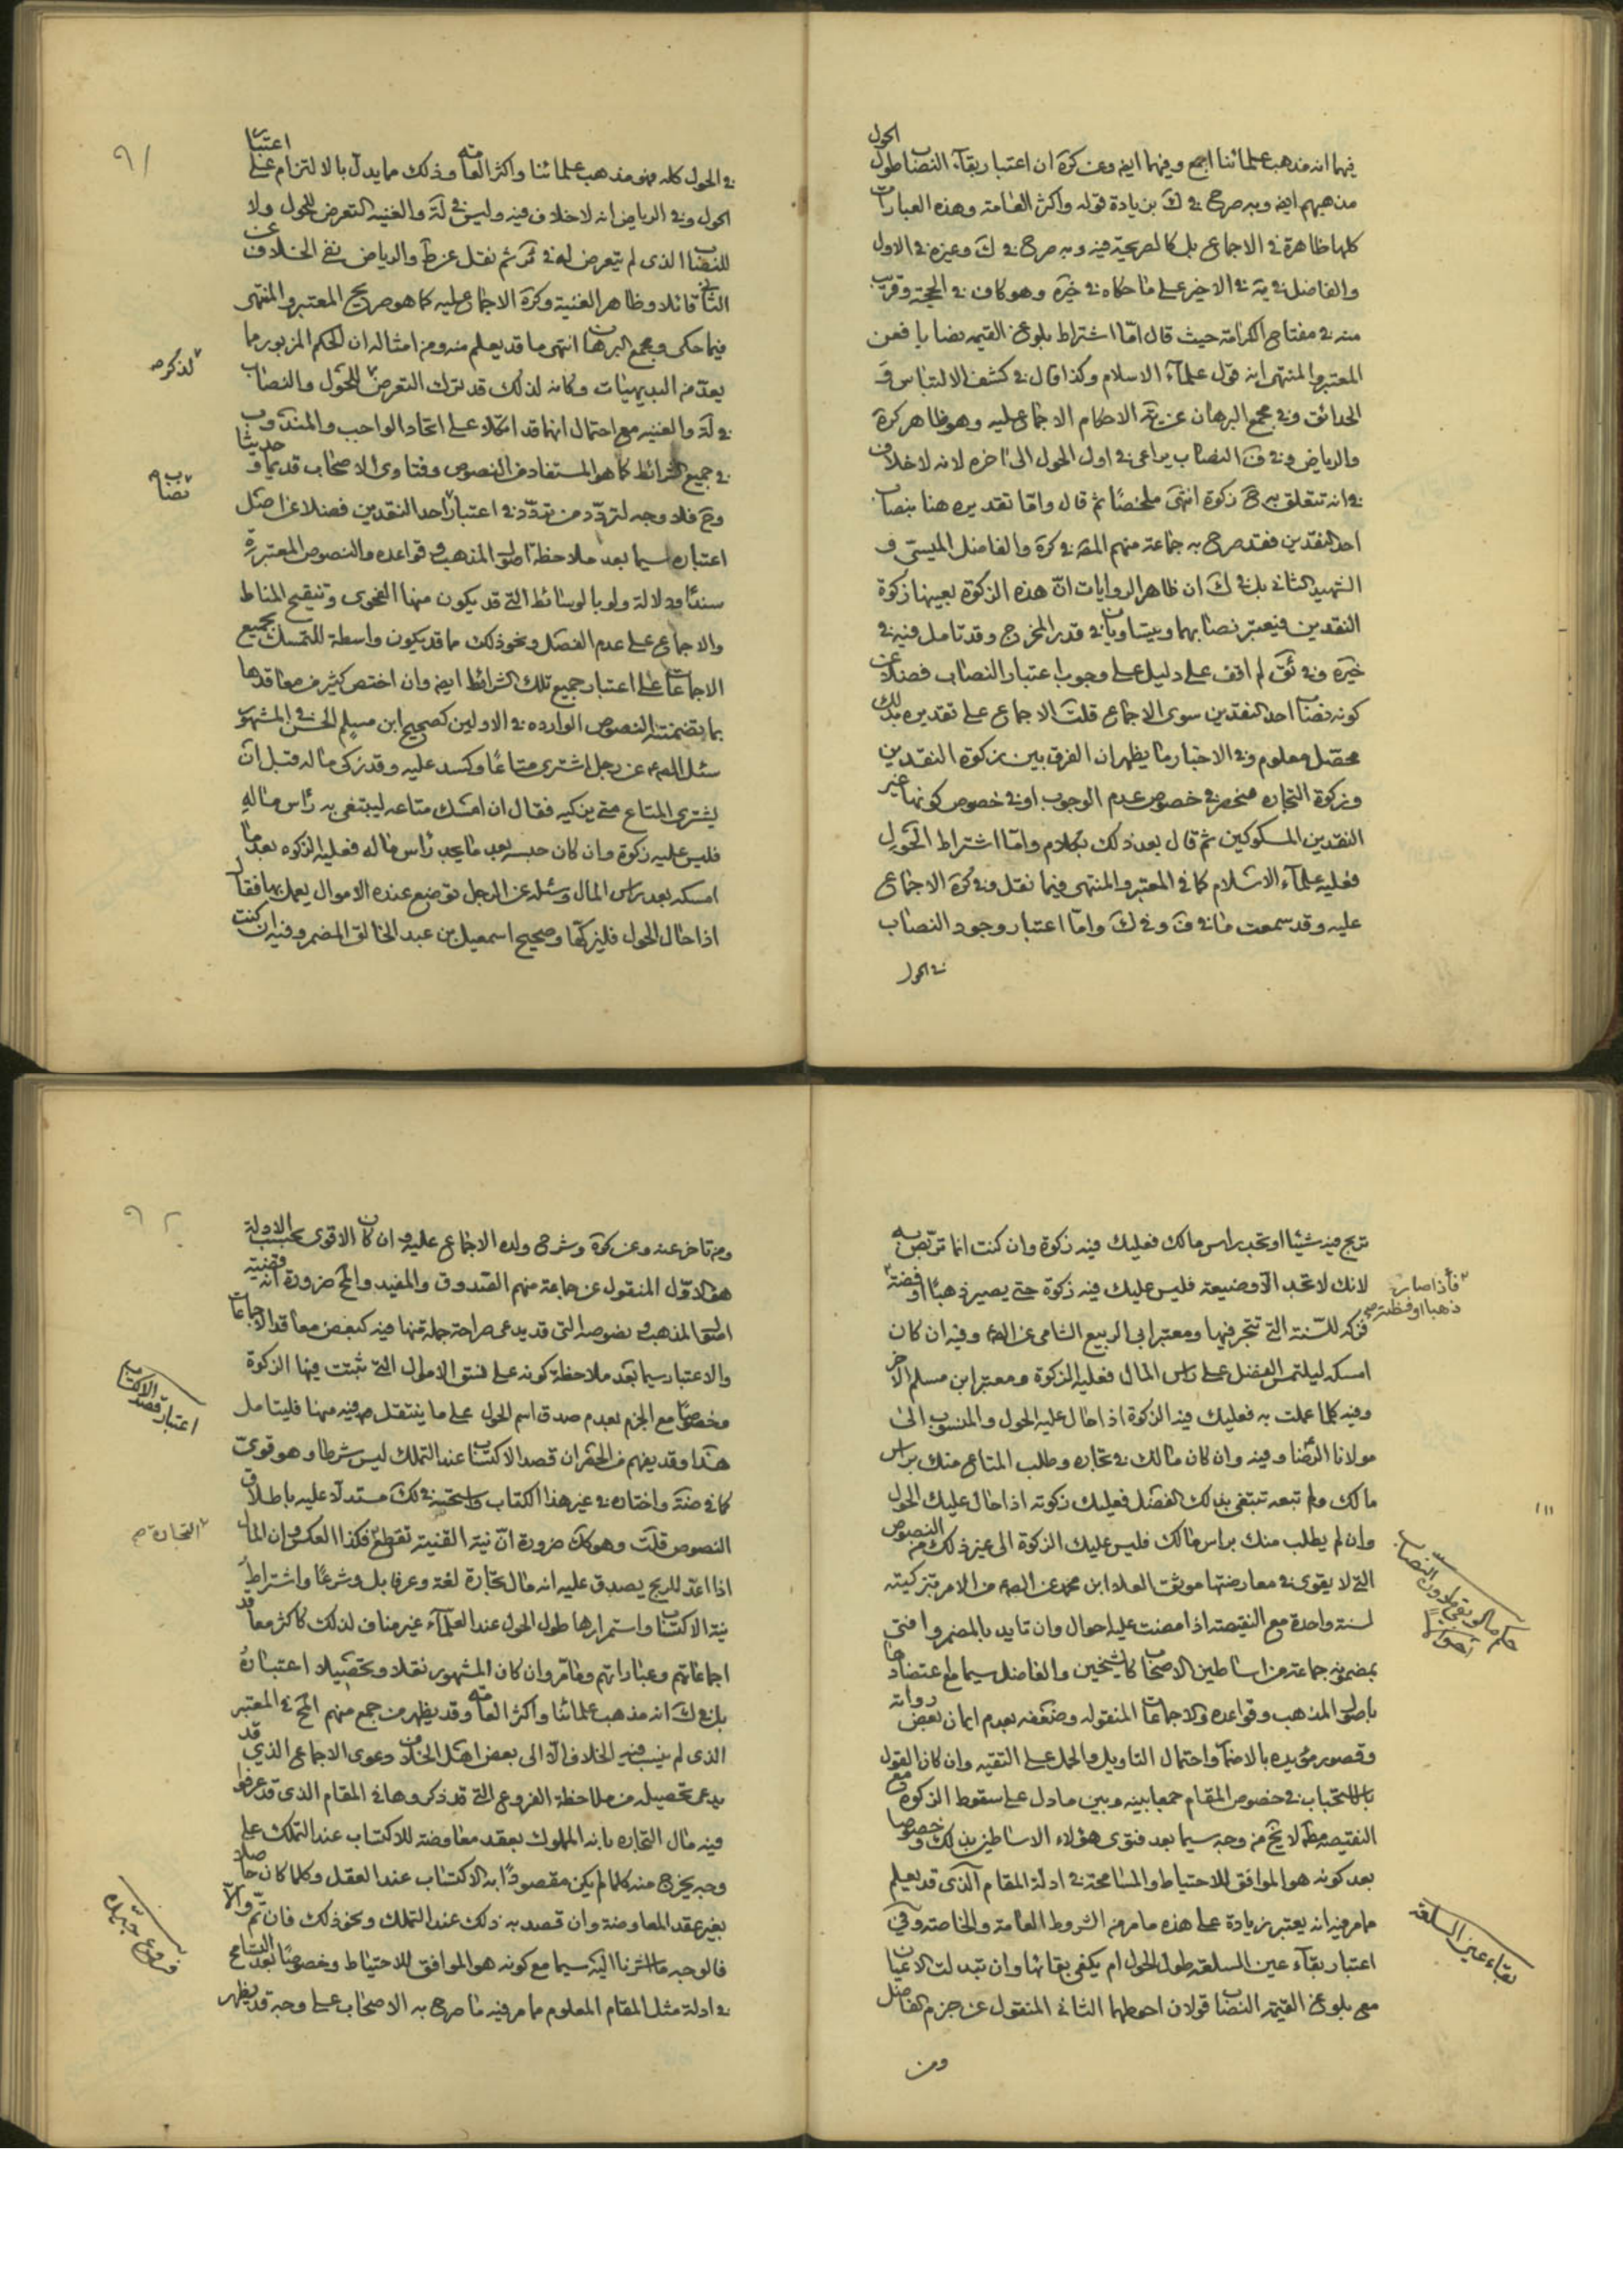 فيها انه مذهب علمائنا اجمع وفيهما ايضا وعن كرة ان اعتبار بقآء النصاب طول الحول
مذهبهم ايضا وبه صرح في ك بزيادة قوله واكثر العامة وهذه العبارات
كلها ظاهرة في الاجماع بل كالصريحة فيه وبه صرح في ك وغيره في الاول
والفاضل في ية في الاخير على ما حكاه في خيرة وهو كاف في الحجة وقريب
منه في مفتاح الكرامة حيث قال امّا اشتراط بلوغ القيمه نصابا فعن
المعتبر والمنتهى انه قول علمآء الاسلام وكذا قال في كشف الالتباس و
الحدائق وفي مجمع البرهان عن ية الاحكام الاجماع عليه وهو ظاهر كرة
والرياض وفي ف النصاب يراعى في اول الحول الى اخره لانه لا خلاف
في انه تتعلق به ح زكوة انتهى ملخصًا ثم قال وامّا تقديره هنا بنصاب
احد النقدين فقد صرح به جماعة منهم المص في كرة والفاضل الميسي و
الشهيد الثاني بل في ك ان ظاهر الروايات انّ هذه الزكوة بعينها زكوة
النقدين فيعتبر نصابهما ويتساويان في قدر المخرج وقد تامل فيه في
خيرة وفي ئق لم اقف على دليل على وجوب اعتبار النصاب فضلا عن
كونه نصاب احد النقدين سوى الاجماع قلت الاجماع على تقديره بذلك
محصّل معلوم وفي الاخبار ما يظهر ان الفرق بين زكوة النقدين
وزكوة التجاره منحصر في خصوص عدم الوجوب او في خصوص كونها غير
النقدين المسكوكين ثم قال بعد ذلك بكلام وامّا اشتراط الحَول
فعليه علمآء الاسلام كما في المعتبر والمنتهى فيما نقل وفي كرة الاجماع
عليه وقد سمعت ما في ف وفي ك وامّا اعتبار وجود النصاب
في الحول
٩١
في الحول كله فهو مذهب علمائنا واكثر العامه وذلك مما يدل بالالتزام على اعتبار
الحول وفي الرياض انه لا خلاف فيه وليس في لة والغنيه التعرض للحول ولا
للنصاب الذي لم يتعرض له في ثم نقل عن ط والرياض نفى الخلاف عن
الثاني قائلا وظاهر الغنية وكرة الاجماع عليه كما هو صريح المعتبر والمنتهى
فيما حكى ومجمع البرهان انتهى ما قد يعلم منه ومن امثاله ان الحكم المزبور مما
يعدّ من البديهيات وكانه لذلك قد ترك التعرض للحَول والنصاب
لذكره
في لة والغنيه مع احتمال انهما قد اتكلا على اتحاد الواجب والمندوب
في جميع الشرائط كما هو المستفاد من النصوص وفتاوى الاصحاب قديما و حديثا
نصاب ص
وح فلا وجه لتردّد من تردّد في اعتبار احد النقدين فضلا عن اصل
اعتباره سيما بعد ملاحظة اصول المذهب و قواعده والنصوص المعتبرة
سندًا ودلالة ولو بالوسائط التي قد يكون منها الفحوى وتنقيح المناط
والاجماع على عدم الفصل ونحو ذلك مما قد يكون واسطة للتمسك بجميع
الاجماعات على اعتبار جميع تلك الشرائط ايضا وان اختص كثير من معاقدها
بما تضمنته النصوص الوارده في الاولين كصحيح ابن مسلم الحسن في المشهور
سئل الصادق ع عن رجل اشترى متاعًا وكسد عليه وقد زكى ماله قبل ان
يشترى المتاع متى يزكيه فقال ان امسك متاعه ليبتغى به رأس ماله
فليس عليه زكوة وان كان حبسه بعد ما يجد رأس ماله فعليه الزكوه بعد ما
امسكه بعد راس المال وسئله عن الرجل توضع عنده الاموال يعمل بها فقال
اذا حال الحول فليزكها وصحيح اسمعيل بن عبد الخالق المضمر وفيه ان كنت
تربح فيه شيئا او تجد راس مالك فعليك فيه زكوة وان كنت انما تربّص به
لانك لا تجد الّا وضيعة فليس عليك فيه زكوة حتى يصير ذهبًا او فضة
فأذا صار
ذهبا او فضة ص
فزكه للسّنة التي تتجر فيها ومعتبر ابى الربيع الشامى عن الصادق وفيه ان كان
امسكه ليلتمس الفضل على راس المال فعليه الزكوة ومعتبر ابن مسلم الاخر
وفيه كلما عملت به فعليك فيه الزكوة اذا حال عليه الحول والمنسوب الى
مولانا الرّضا وفيه وان كان مالك في تجاره وطلب المتاع منك براس
مالك ولم تبعه تبتغى بذلك الفضل فعليك زكوته اذا حال عليك الحول
وان لم يطلب منك براس مالك فليس عليك الزكوة الى غير ذلك من النصوص
حكم ما لو بقى طول النصاب
التي لا يقوى في معارضتها موثق العلا ابن محمد عن الصادق من الامر بتزكيته
لسنة واحدة مع النقيصة اذا مضت عليه احوال وان تايد بالمضمر وافتى
بمضمونه جماعة من اساطين الاصحاب كالشيخين والفاضل سيما مع اعتضادها
باصول المذهب وقواعده والاجماعات المنقوله وضعفه بعدم ايمان بعض رواته
وقصور مؤيده بالاضمار واحتمال التاويل والحمل على التقيه وان كان القول
بالاستحباب في خصوص المقام جمعا بينه وبين ما دل على سقوط الزكوة مع
النقيصة مطلقا لا يخ من وجه سيما بعد فتوى هؤلاء الاساطين بذلك و خصوصا
بعد كونه هو الموافق للاحتياط والمسامحة في ادلة المقام الّذى قد يعلم
مما مر فيه انه يعتبر زيادة على هذه ما مر من الشروط العامة والخاصة وفي
بقاء عين السلعه
اعتبار بقآء عين السلعه طول الحول ام يكفى بقائها وان تبدلت الاعيان
مع بلوغ القيمة النصاب قولان احوطهما الثاني المنقول عن جزم الفاضل
ومن
٩٢
ومن تاخر عنه وعن كرة وشرح ولده الاجماع عليه و ان كان الاقوى بحسب الادلة
هو الاوّل المنقول عن جماعة منهم الصّدوق والمفيد والمح ضرورة انه قضية
اصول المذهب و نصوصه التى قد يدعى صراحة جملة منها فيه كبعض معاقد الاجماعات
والاعتبار سيما بعد ملاحظة كونه على نسق الاموال التي ثبتت فيها الزكوة
وخصوصًا مع الجزم بعدم صدق اسم الحول على ما ينتقل من فيه مهنا فليتامل
اعتبار قصد الاكتساب
هذا وقد يفهم من الحصر ان قصد الاكتساب عند التملك ليس شرطا وهو قوىّ
كما في ضة واختاره في غير هذا الكتاب واستحبه في لك مستدلّا عليه باطلاق
النصوص قلت وهو كك ضرورة انّ نية القنية تقطع فكذا العكس وان المال
التجارة ص
اذا اعدّ للربح يصدق عليه انه مال تجارة لغة وعرفا بل وشرعًا واشتراط
نية الاكتساب واستمرارها طول الحول عند العلمآء غير مناف لذلك كاكثر معاقد
اجماعاتهم وعباراتهم وما مر وان كان المشهور نقلا وتحصيلا اعتباره
بل في ك انه مذهب علمائنا واكثر العامه وقد يظهر من جمع منهم المح في المعتبر
الذى لم ينسب فيه الخلاف الّا الى بعض اهل الخلاف دعوى الاجماع الذي قد
يدعى تحصيله من ملاحظة الفروع التي قد ذكروها في المقام الذى قد عرفوا
فيه مال التجاره بانه المملوك بعقد معاوضة للاكتساب عند التملك على
وجه يخرج منه كلما لم يكن مقصودًا به الاكتساب عند العقل وكلما كان حاصلا
بغير عقد المعاوضة وان قصد به ذلك عند التملك ونحو ذلك فان تمّ و الّا
فروع جيدة
فالوجه ما اشرنا اليه سيما مع كونه هو الموافق للاحتياط وخصوصًا بعد التسامح
في ادلة مثل المقام المعلوم مما مر فيه ما صرح به الاصحاب على وجه قد يظهر